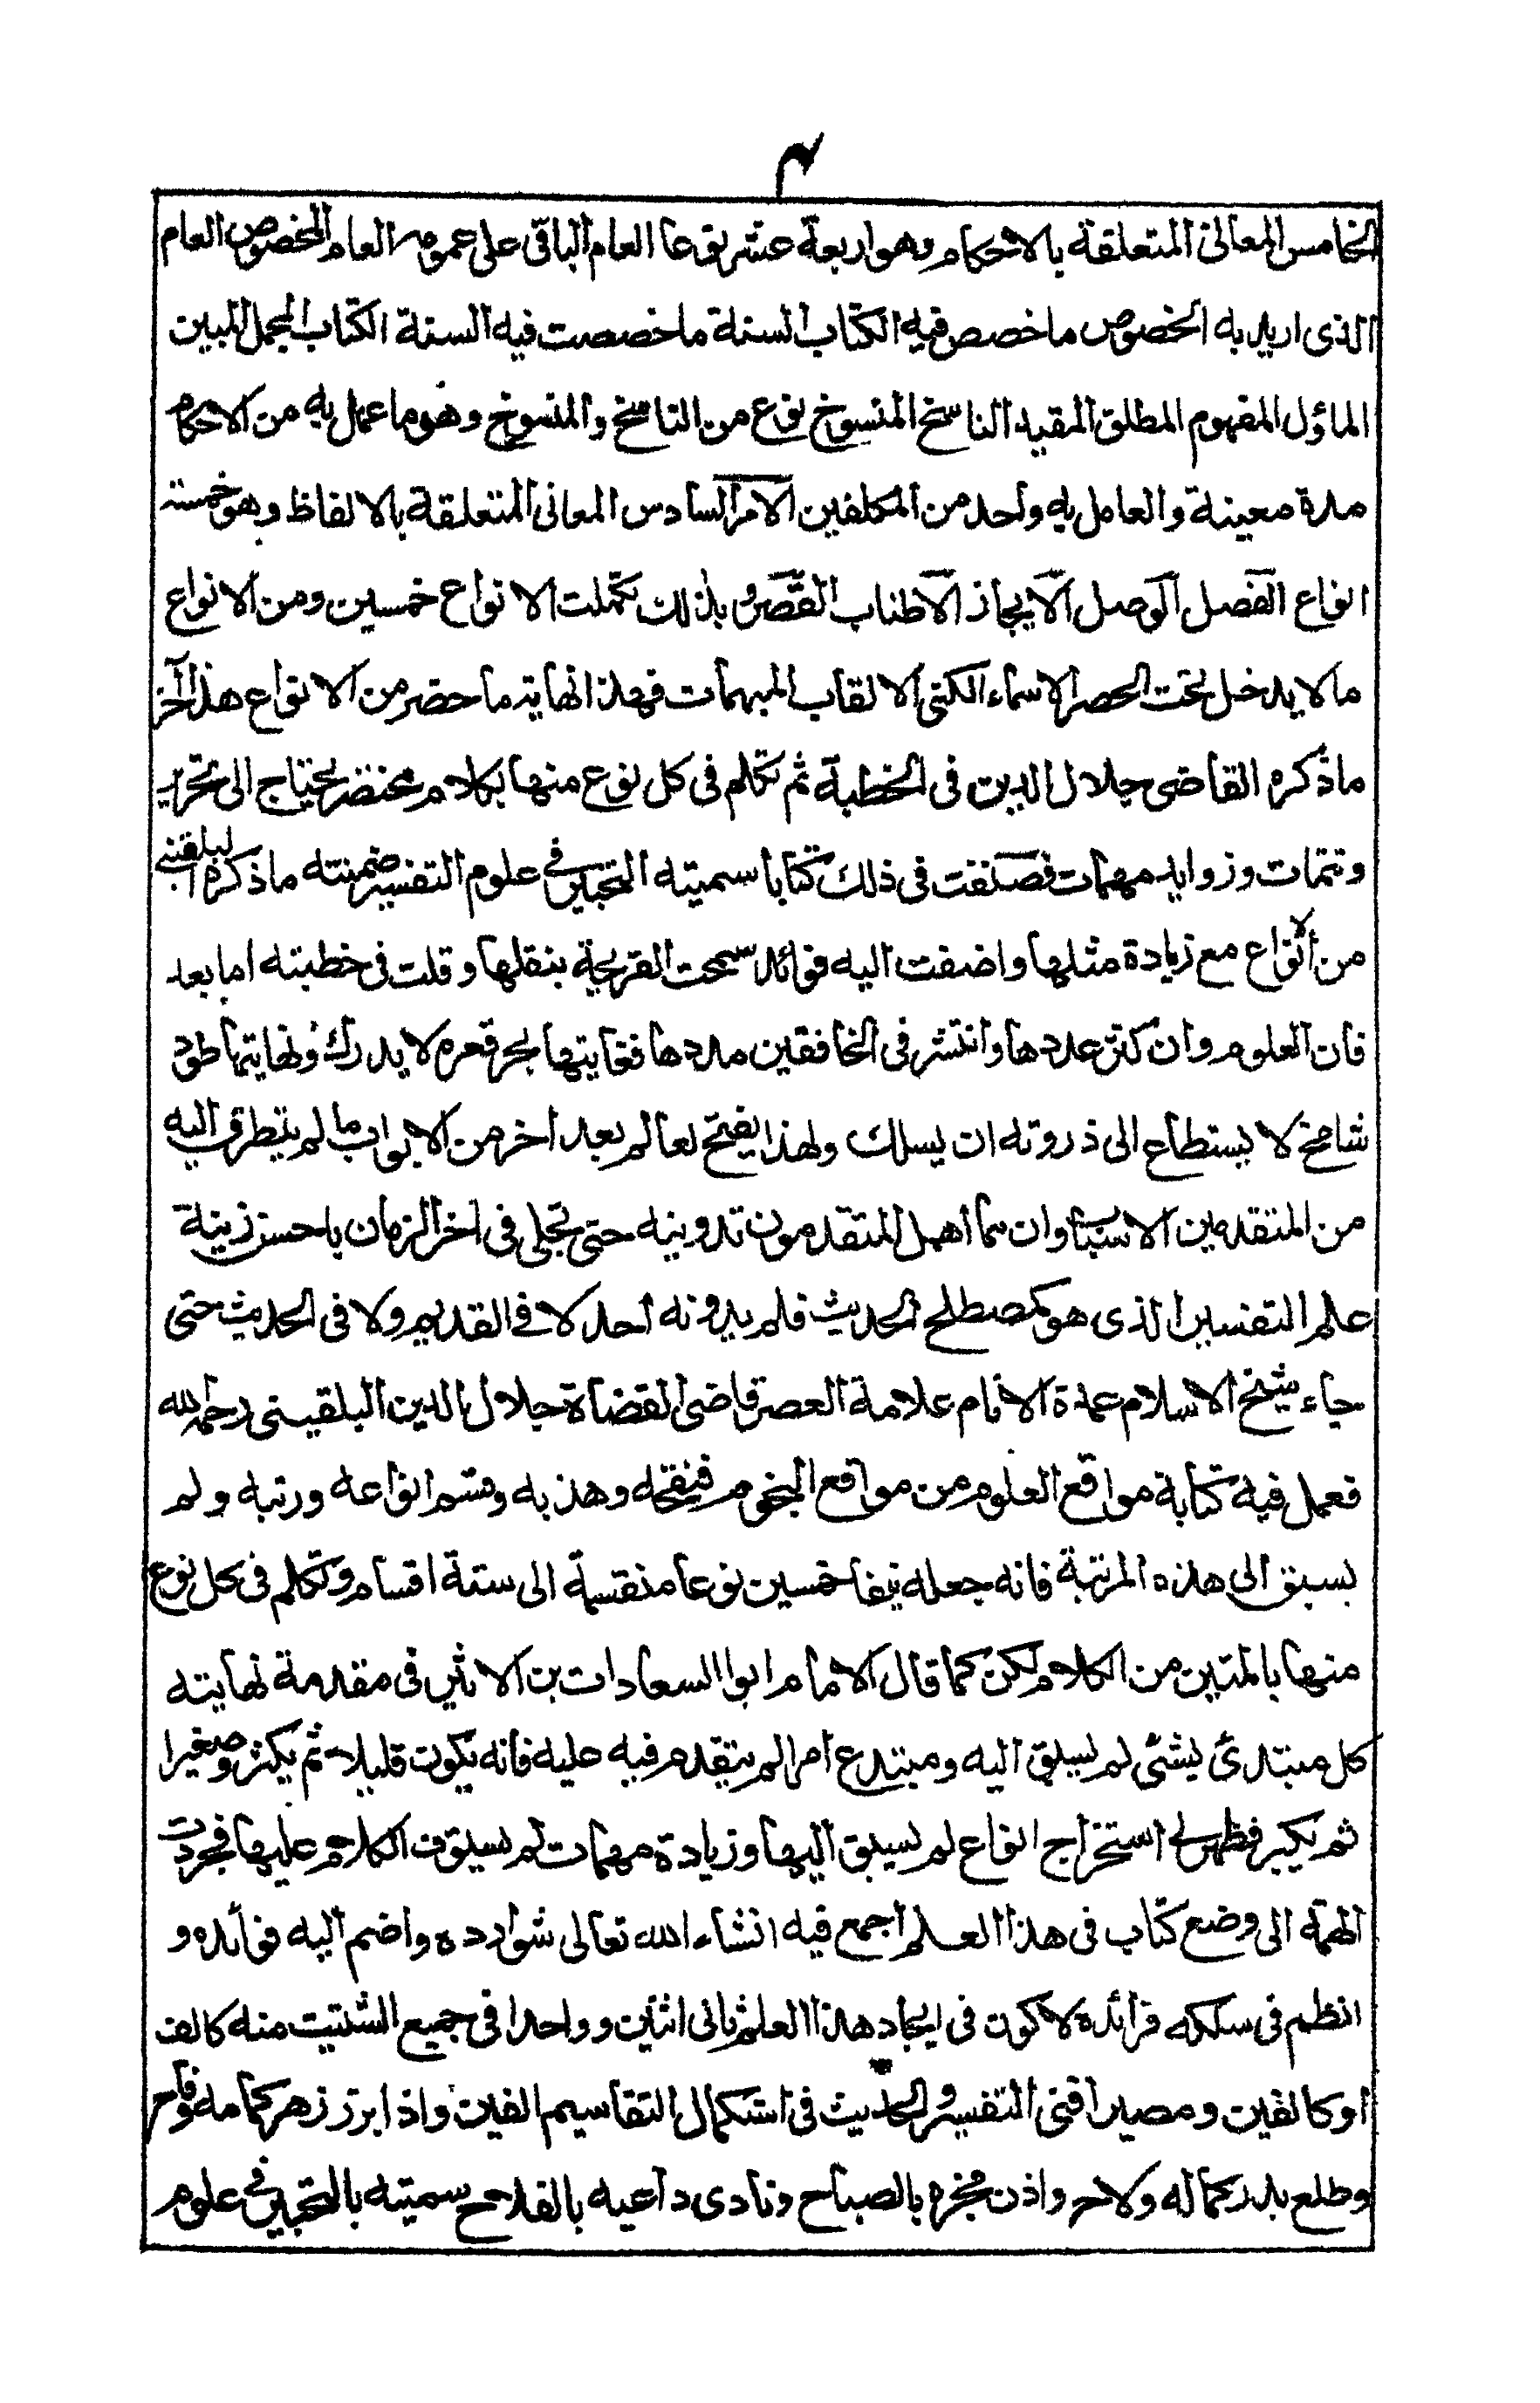 ٣
الخامس المعانى المتعلقة بالاحكام وهو اربعة عشر نوعا العام الباقى على عمومه العام المخصوص العام
الذى اريد به الخصوص ما خصص فيه الكتاب السنة ما خصصت فيه السنة الكتاب المجمل المبين
المأول المفهوم المطلق المقيد الناسخ المنسوخ نوع من الناسخ والمنسوخ وهو ما عمل به من الاحكام
مدة معينة والعامل به واحد من المكلفين الامر السادس المعانى المتعلقة بالالفاظ وهو خمسة
انواع الفصل الوصل الايجاز الاطناب القصر وبذلك تكملت الانواع خمسين ومن الانواع
ما لا يدخل تحت الحصر الاسماء الكنى الالقاب المبهمات فهذا نهاية ما حضر من الانواع هذا آخر
ما ذكره القاضى جلال الدين فى الخطبة ثم تكلم فى كل نوع منها بكلام مختصر يحتاج الى تحرير
وتتمات وزوايد مهمات فصنفت فى ذلك كتابا سميته التحبير فى علوم التفسير ضمنته ما ذكره البلقينى
من الانواع مع زيادة مثلها واضفت اليه فوائد سمحت القريحة بنقلها وقلت فى خطبته اما بعد
فان العلوم وان كثر عددها وانتشر فى الخافقين مددها فغايتها بحر قعره لا يدرك ونهايتها طود
شامخ لا يستطاع الى ذروته ان يسلك ولهذا يفتح لعالم بعد اخر من الابواب ما لم يتطرق اليه
من المتقدمين الاسباب وان مما اهمل المتقدمون تدوينه حتى تجلى فى اخر الزمان باحسن زينة
علم التفسير الذى هو كمصطلح الحديث فلم يدونه احد لا فى القديم ولا فى الحديث حتى
جاء شيخ الاسلام عمدة الانام علامة العصر قاضى القضاة جلال الدين البلقينى رحمه الله
فعمل فيه كتابة مواقع العلوم من مواقع النجوم فنقحه وهذبه وقسم انواعه ورتبه ولم
يسبق الى هذه المرتبة فانه جعله نيفا خمسين نوعا منقسمة الى ستة اقسام وتكلم فى كل نوع
منها بالمتين من الكلام لكن كما قال الامام ابو السعادات بن الاثير فى مقدمة نهايته
كل مبتدئ بشئ لم يسبق اليه ومبتدع امرا لم يتقدم فيه عليه فانه يكون قليلا ثم يكثر وصغيرا
ثم يكبر فظهر لى استخراج انواع لم يسبق اليها وزيادة مهمات لم يستوف الكلام عليها فجردت
الهمة الى وضع كتاب فى هذا العلم اجمع فيه انشاء الله تعالى شوارده واضم اليه فوائده و
انظم فى سلكه فرائده لاكون فى ايجاد هذا العلم ثانى اثنين وواحدا فى جميع الشتيت منه كالف
او كالفين ومصيرا فنى التفسير والحديث فى استكمال التقاسيم الفين واذا برز زهر كمامه وفاح
وطلع بدر كماله ولاح واذن فجره بالصباح ونادى داعيه بالفلاح سميته بالتحبير فى علوم